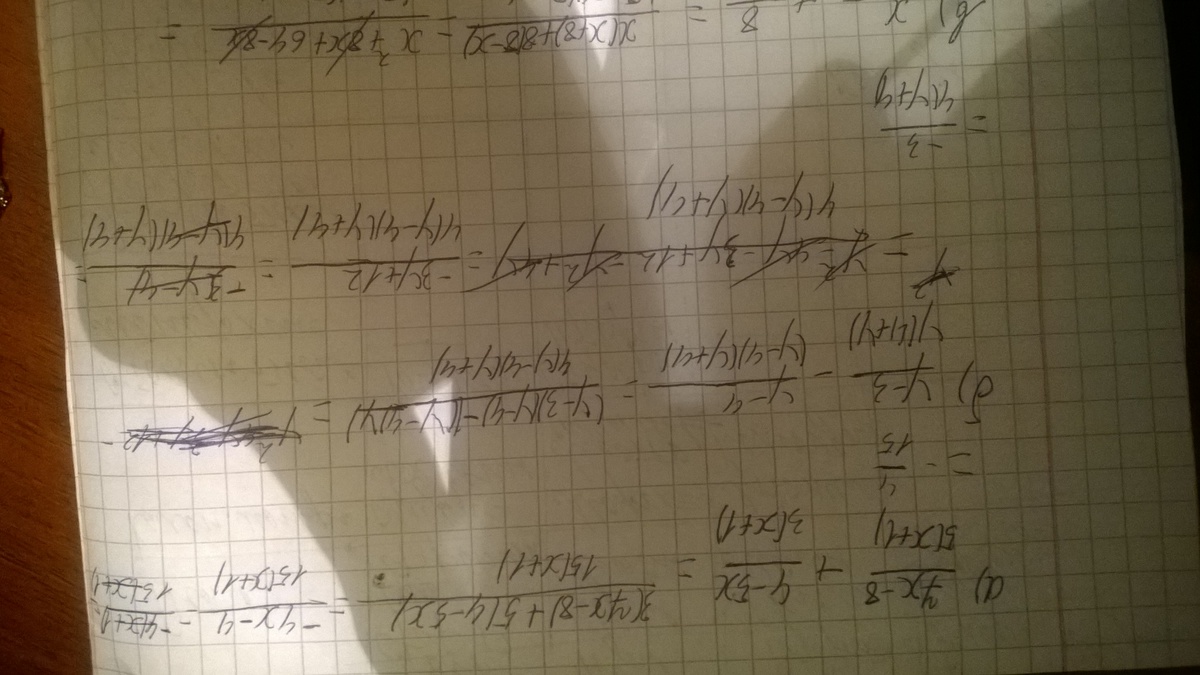 а) (7x-8)/(5(x+1)) + (4-5x)/(3(x+1)) = (3(7x-8)+5(4-5x))/(15(x+1)) = (-4x-4)/(15(x+1)) = (-4(x+1))/(15(x+1)) =
= -4/15
б) (y-3)/(y(4+y)) - (y-4)/((y-4)(y+4)) = ((y-3)(y-4)-(y-4)y)/(y(y-4)(y+4)) =
= (y²-4y-3y+12-y²+4y)/(y(y-4)(y+4)) = (-3y+12)/(y(y-4)(y+4)) = (-3(y-4))/(y(y-4)(y+4)) =
= -3/(y(y+4))
в) x + 8 = x(x+8)+8(8-x) = x²+8x+64-8x =